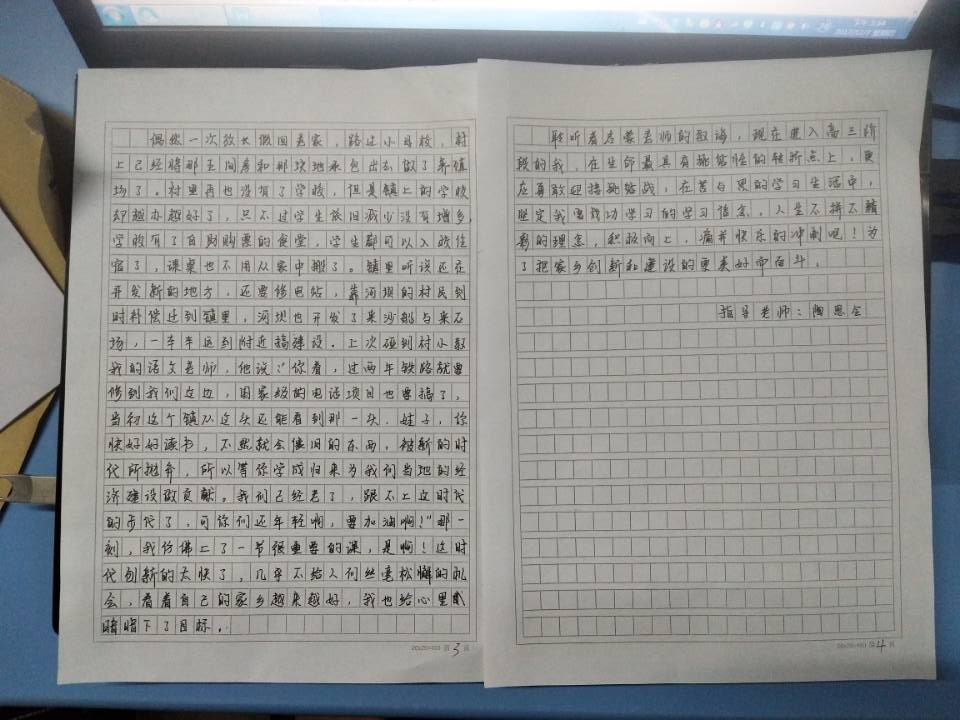 偶然一次放长假回老家，路过小母校，村
上已经将那五间房和那块地承包出去做了养殖
场了。村里再也没有了学校，但是镇上的学校
却越办越好了，只不过学生依旧减少没有增多，
学校有了自助购票的食堂，学生都可以入校住
宿了，课桌也不用从家中搬了。镇里听说还在
开发新的地方，还要修电站，靠河坝的村民到
时补偿迁到镇里，河坝也开发了采沙船与采石
场，一车车运到附近搞建设。上次碰到村小教
我的语文老师，他说："你看，过两年铁路就要
修到我们这边，国家级的电话项目也要搞了，
当初这个镇从这头还能看到那一头，娃子，你
快好好读书，不然就会像旧的东西，被新的时
代所抛弃，所以等你学成归来为我们当地的经
济建设做贡献。我们已经老了，跟不上这时代
的步代了，可你们还年轻啊，要加油啊！"那一
刻，我仿佛上了一节很重要的课，是啊！这时
代创新的太快了，几乎不给人们丝毫松懈的机
会，看着自己的家乡越来越好，我也给心里
暗暗下了目标。
20x20=400 第3页
聆听着启蒙老师的教诲，现在进入高三阶
段的我，在生命最具有挑战性的转折点上，更
应勇敢迎接挑战，在苦与累的学习生活中，
坚定我要成功学习的学习信念，人生不拼不精
彩的理念，积极向上，痛并快乐的冲刺吧！为
了把家乡创新和建设的更美好而奋斗。
指导老师：陶思全
20x20=400 第4页